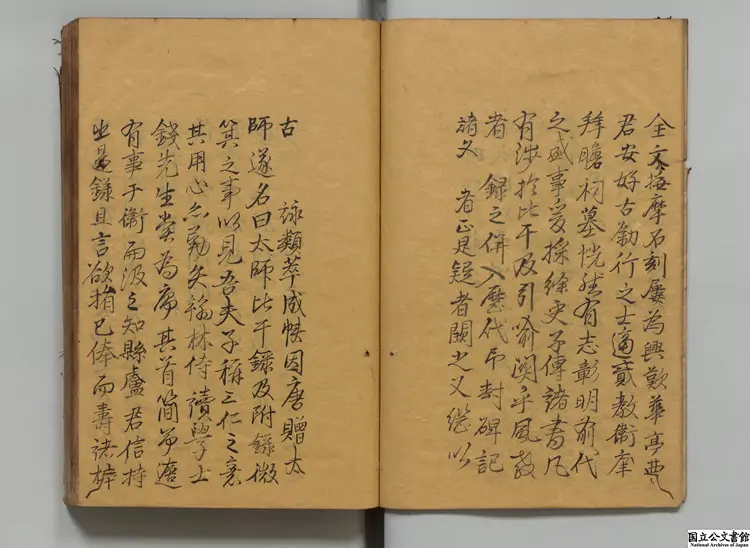 全文搨摩石刻屢為興歎華亭曹
君安好古勵行之士適貳教衛庠
拜瞻祠墓恍然有志彰明前代
之盛事爰採經史子傳諸書凡
有涉於比干及引喻關乎風教
者 錄之併入歷代弔封碑記
諸文 者正是疑者闕之又繼以
古 詠類萃成帙因唐贈太
師遂名曰太師比干錄及附錄微
箕之事以見吾夫子稱三仁之意
其用心亦勤矣翰林侍讀學士
錢先生嘗為序其首簡茅瀍
有事于衛而汲之知縣盧君信持
是錄且言欲捐己俸而壽諸梓
国立公文書館
National Archives of Japan